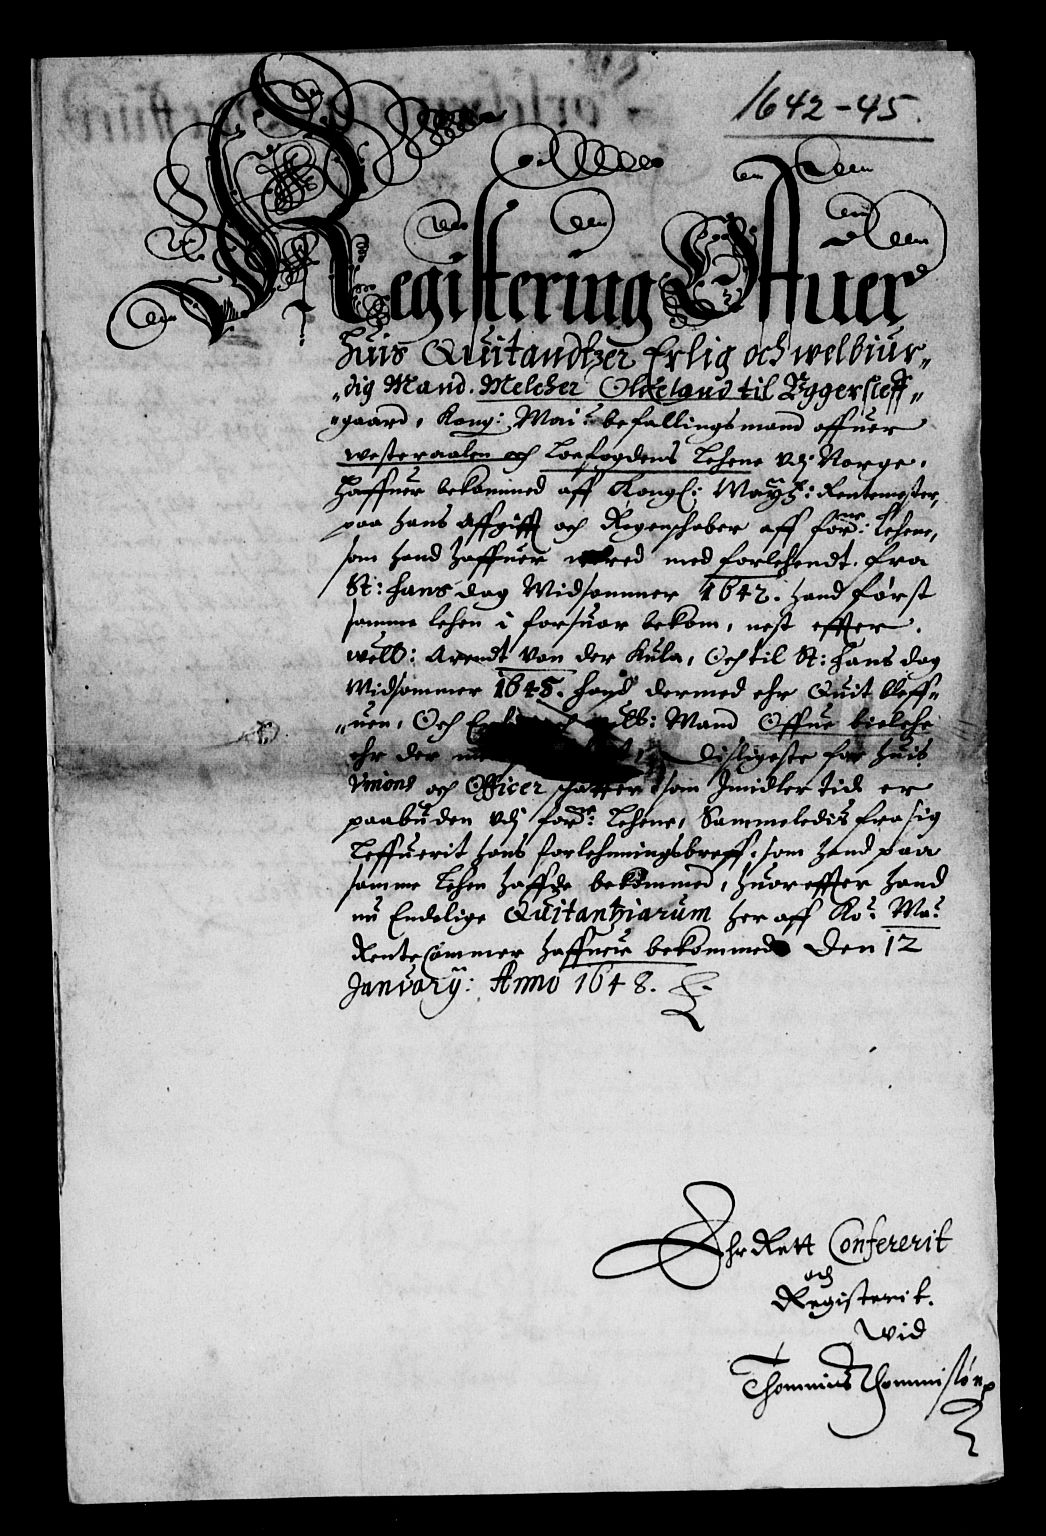 1642-45.
Registering Offuer
Huis Quitandtzer Erlig och welbiur„
„dig Mand. Melcher Oldeland til Uggersleff„
„gaard, Kong: Mai: befallingsmand offuer
Westeraalen och Loefogdens Lehene udj Norge,
Haffuer bekommed aff Kongl: Maytz: Rentemester,
paa hans Affgifft och Regenschaber aff forne: Lehene,
som hand haffuer werred med forlehendt. fra
St: Hans dag Midsommer 1642. hand først
samme Lehen i forsuar bekom, nest effter.
welb: Arendt von der Kula, Och til St: Hans dag
Midsommer 1645. hand dermed ehr Quit bleff„
„uen, Och welb: Mand Offue Bielche
ehr der disligeste for huis
Unions och Officer schatter som Imidler tid er
paabuden udj forne: Lehene, Sammeledis fra sig
Leffuerit hans forlehningsbreff, som hand paa
samme Lehen haffde bekommed, huoreffter hand
nu Endelige Quitantziarum her aff Ko: Ma:
RenteCammer haffuer bekommed Den 12
January: Anno 1648.
Ehr Rett Confererit
och
Registerit.
wid